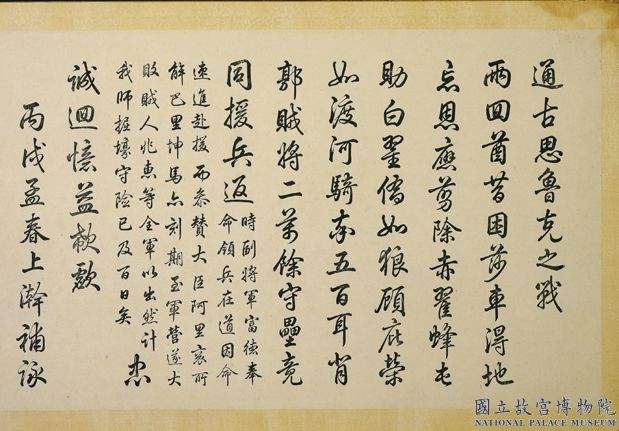 通古思魯克之戰
兩回酋昔困莎車得地
忘恩應剪除赤翟蜂屯
助白翟僑如狼顧庇榮
如渡河騎五百耳背
郭賊將二萬餘守壘竟
同援兵返
時副將軍富德奉
命領兵在道因命
速進赴援而參贊大臣阿里袞所
解巴里坤馬亦刻期至軍營遂大
敗賊人兆惠等全軍以出然計
我師掘壕守險已及百日矣
忠
誠迴憶益欷歔
丙戌孟春上澣補詠
國立故宮博物院
NATIONAL PALACE MUSEUM